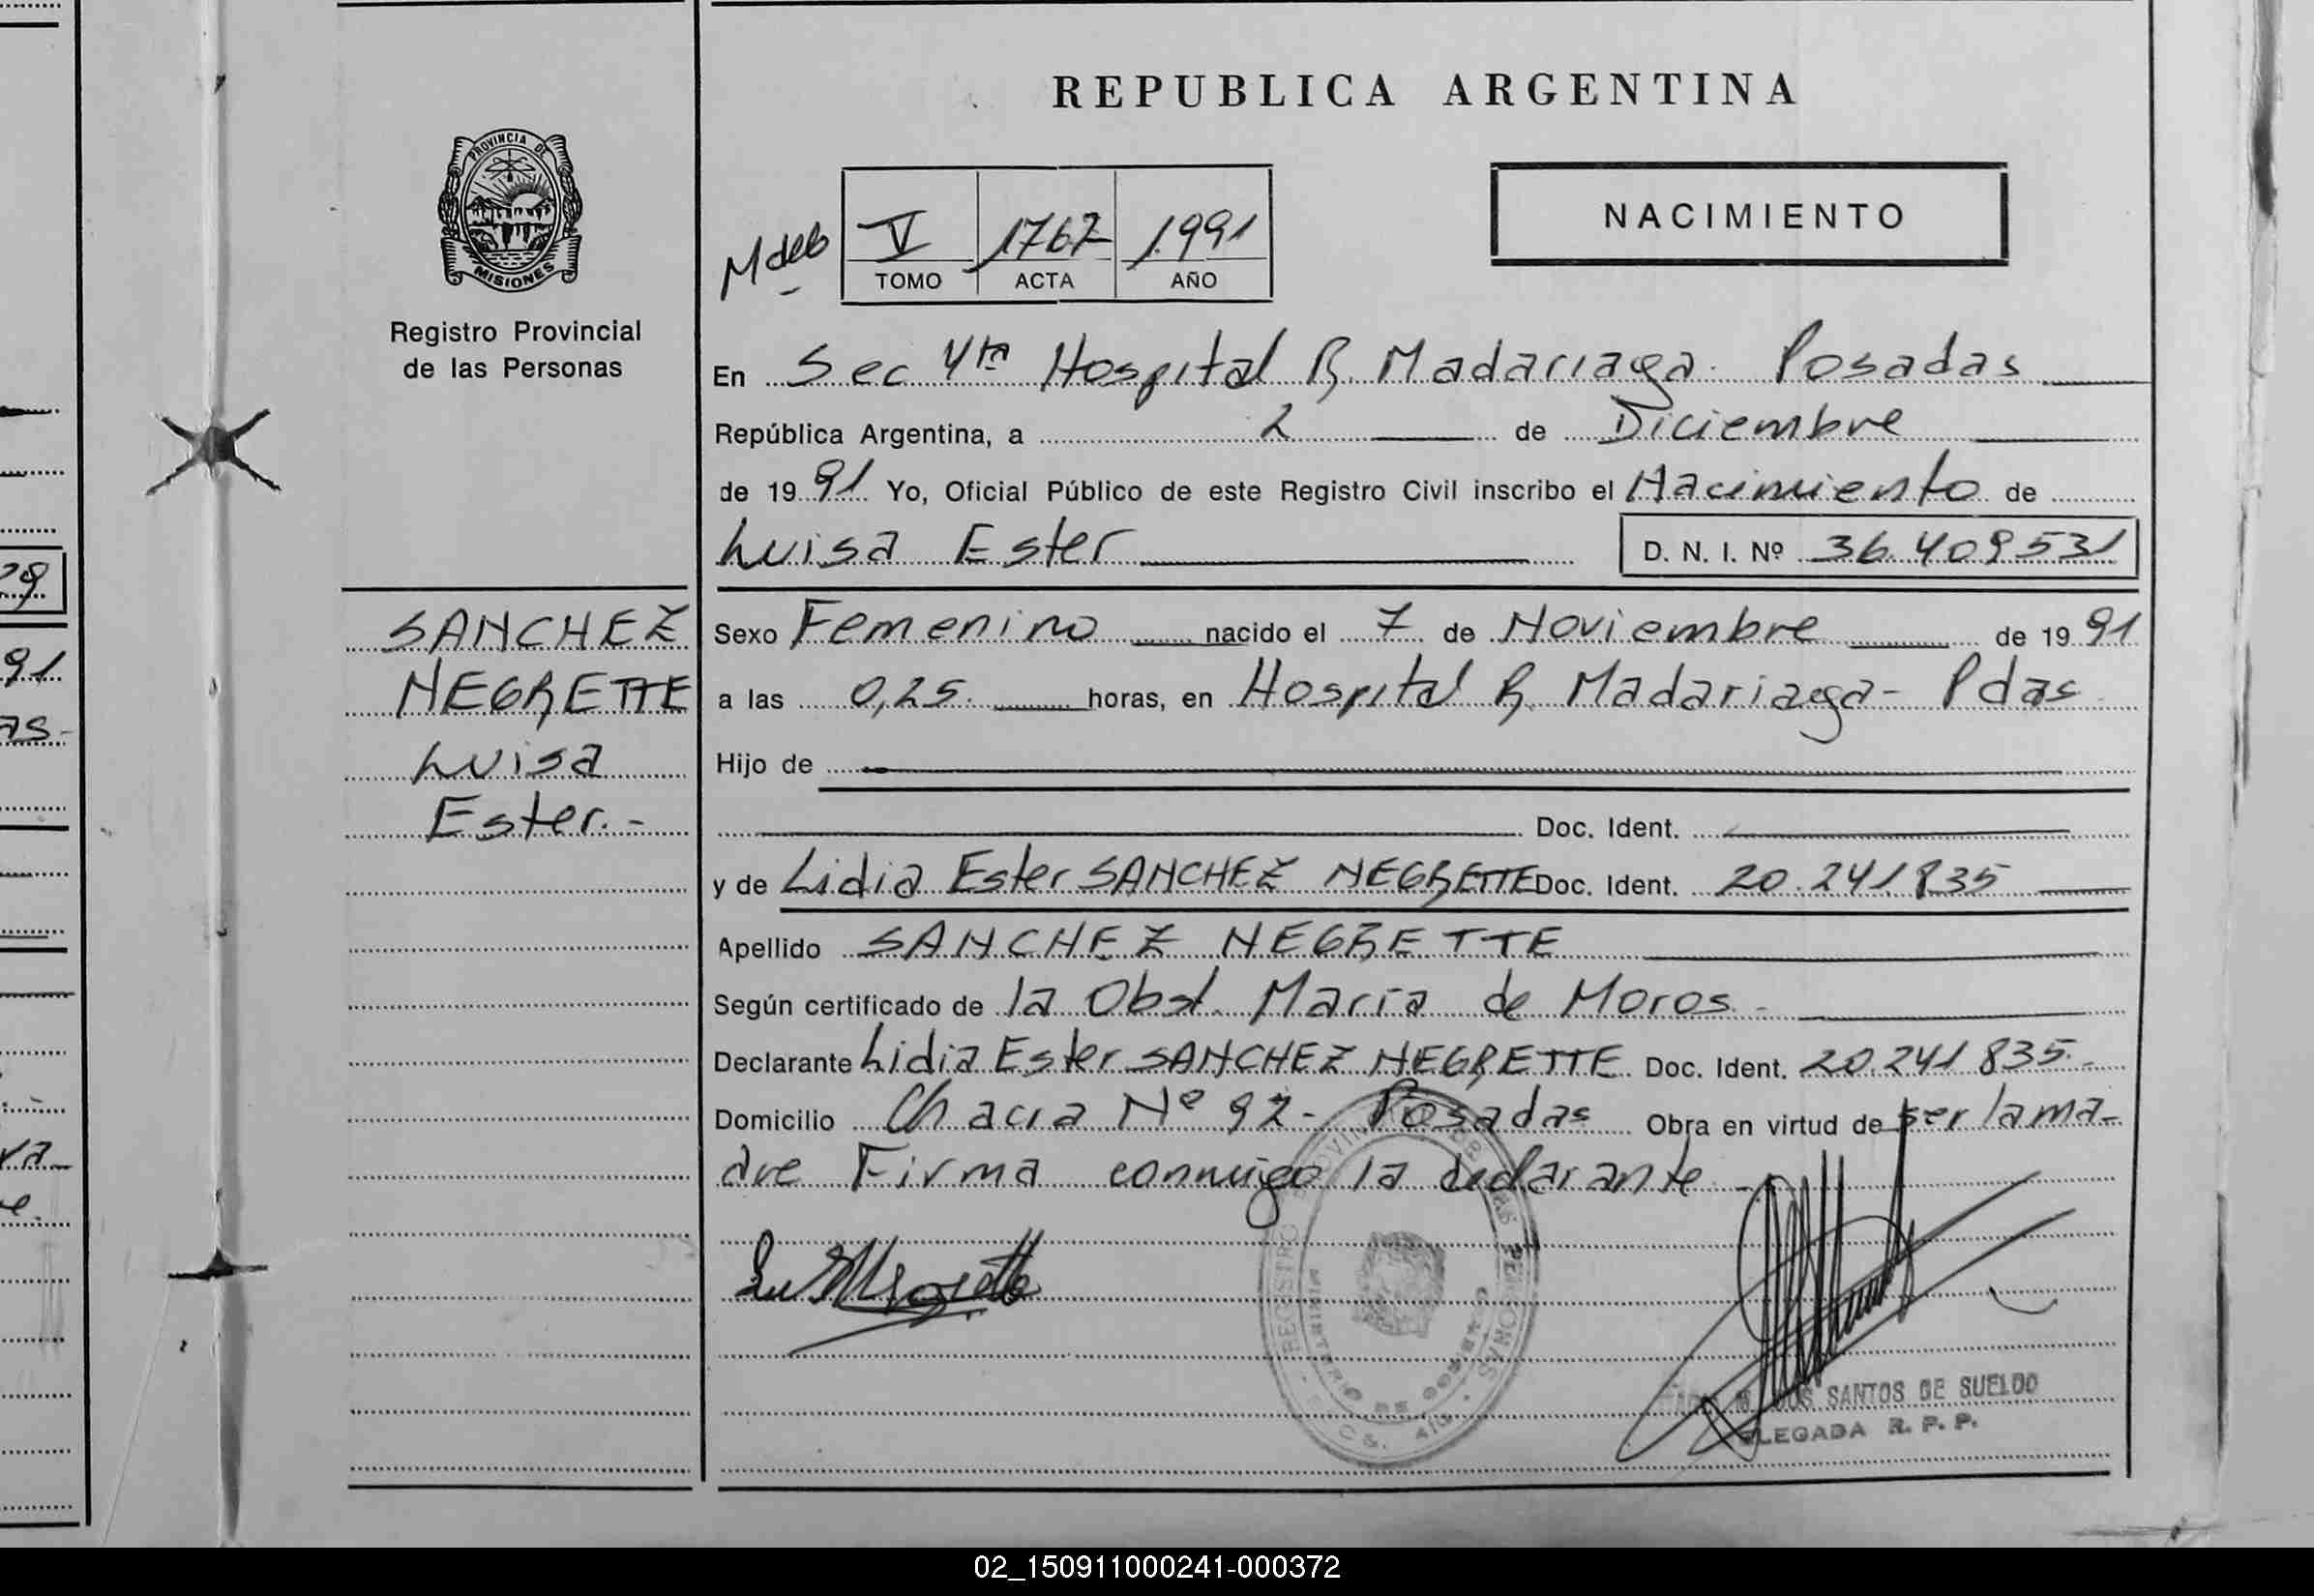 REPUBLICA ARGENTINA
PROVINCIA DE
MISIONES
Registro Provincial
de las Personas
NACIMIENTO
V 1767 1991
TOMO ACTA AÑO
En Sec 4ta Hospital R. Madariaga. Posadas
República Argentina, a 2 de Diciembre
de 19 91 Yo, Oficial Público de este Registro Civil inscribo el Nacimiento de
Luisa Ester D. N. I. Nº 36.409531
SANCHEZ
NEGRETTE
Luisa
Ester.-
Sexo Femenino nacido el 7 de Noviembre de 19 91
a las 0,25. horas, en Hospital R. Madariaga - Pdas.
Hijo de
Doc. Ident.
y de Lidia Ester SANCHEZ NEGRETTE Doc. Ident. 20.241.835
Apellido SANCHEZ NEGRETTE
Según certificado de la Obst. Maria de Moros.-
Declarante Lidia Ester SANCHEZ NEGRETTE Doc. Ident. 20.241 835.-
Domicilio Chacra Nº 92- Posadas Obra en virtud de ser la ma-
dre Firma conmigo la declarante.-
REGISTRO PROVINCIAL DE LAS PERSONAS
MINISTERIO DE GOBIERNO
DOS SANTOS DE SUELDO
DELEGADA R. P. P.
29
91
as-
02_150911000241-000372